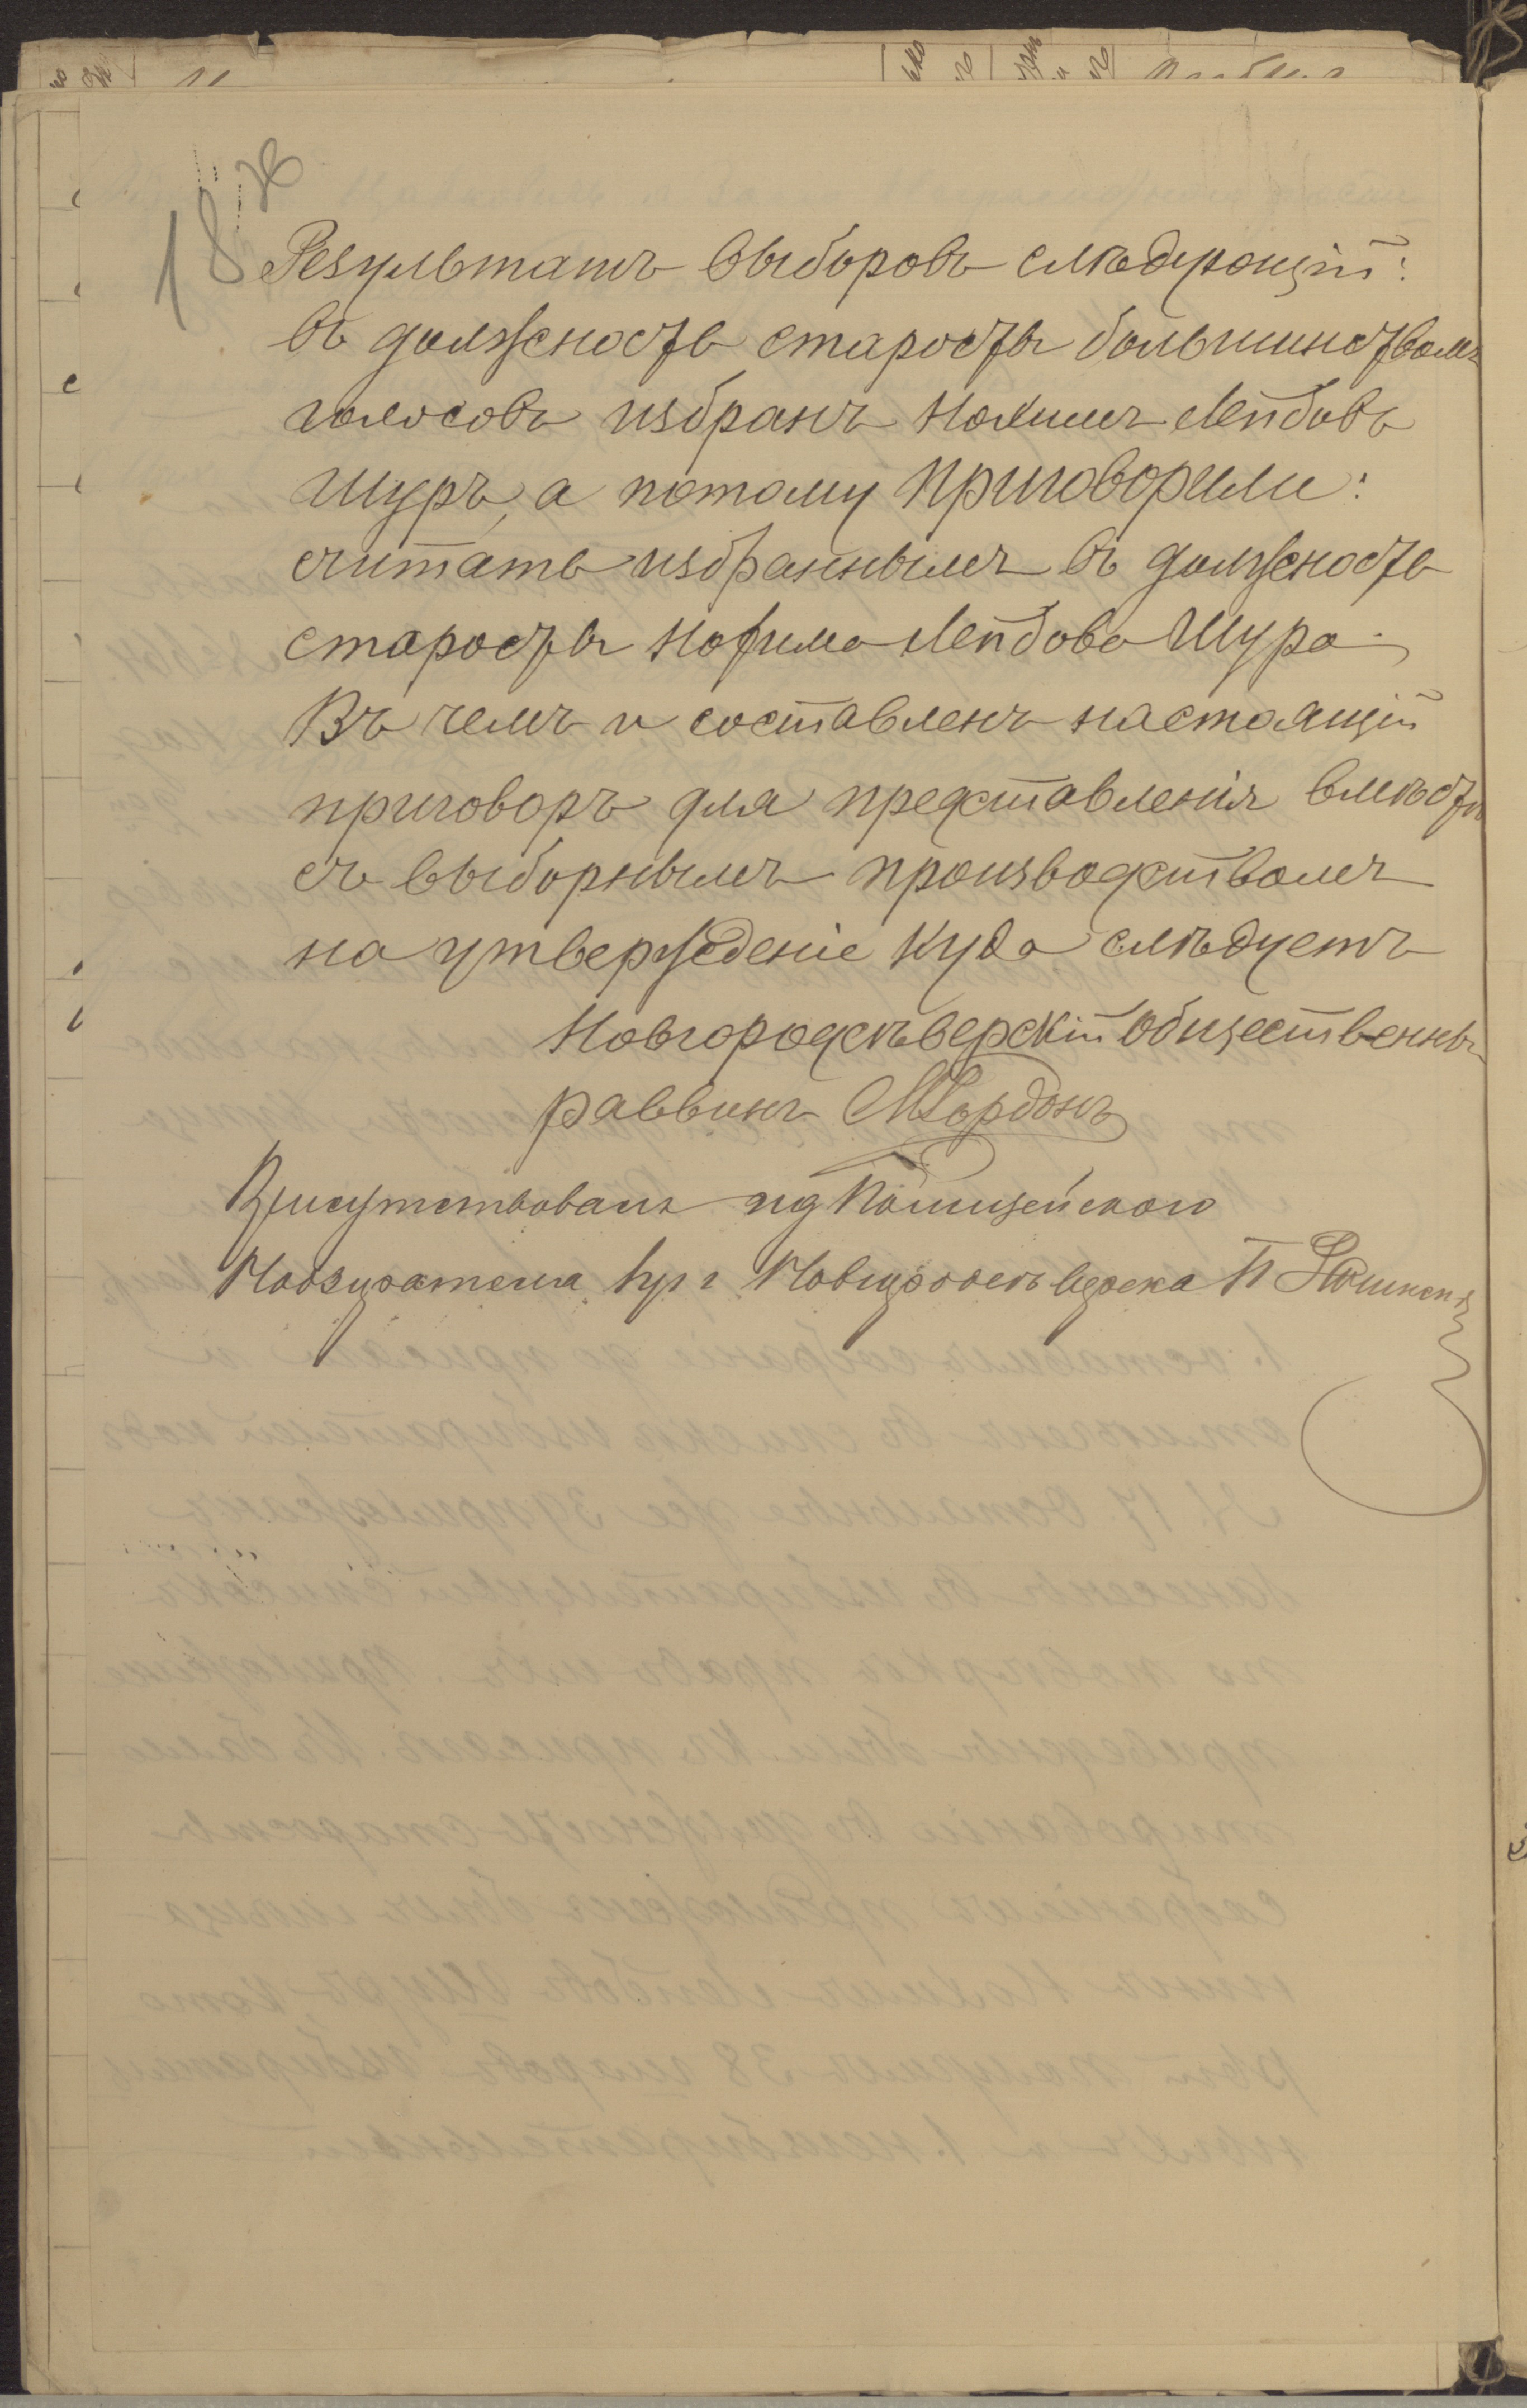 18 ж
Результатъ выборовъ слѣдующій:
въ должность старосты большинствомъ
голосовъ избранъ Нохимъ Лейбовъ
Шуръ, а потому приговорили:
считать избраннымъ въ должность
старосты Нохима Лейбова Шура.
Въ чемъ и составленъ настоящій
приговоръ для представленія вмѣстѣ
съ выборнымъ производствомъ
на утвержденіе куда слѣдуетъ
Новгородсѣверскій Общественный
раввинъ М Гордонъ
Присутствовалъ ид Полицейскаго
Надзирателя гор Новгородсѣверска П